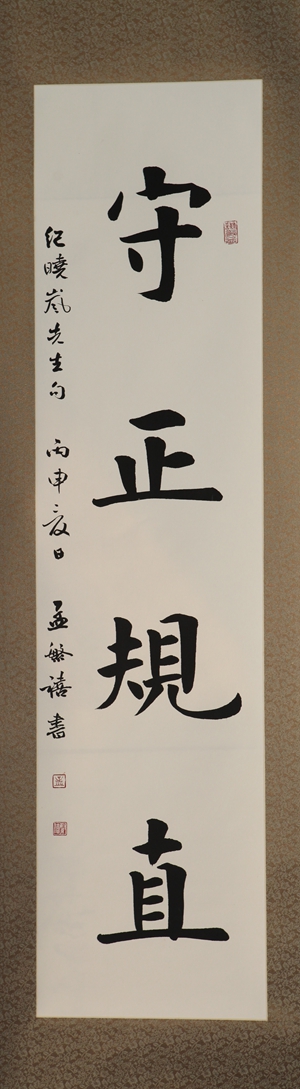 守正規直
紀曉嵐先生句 丙申夏日 孟繁禧書